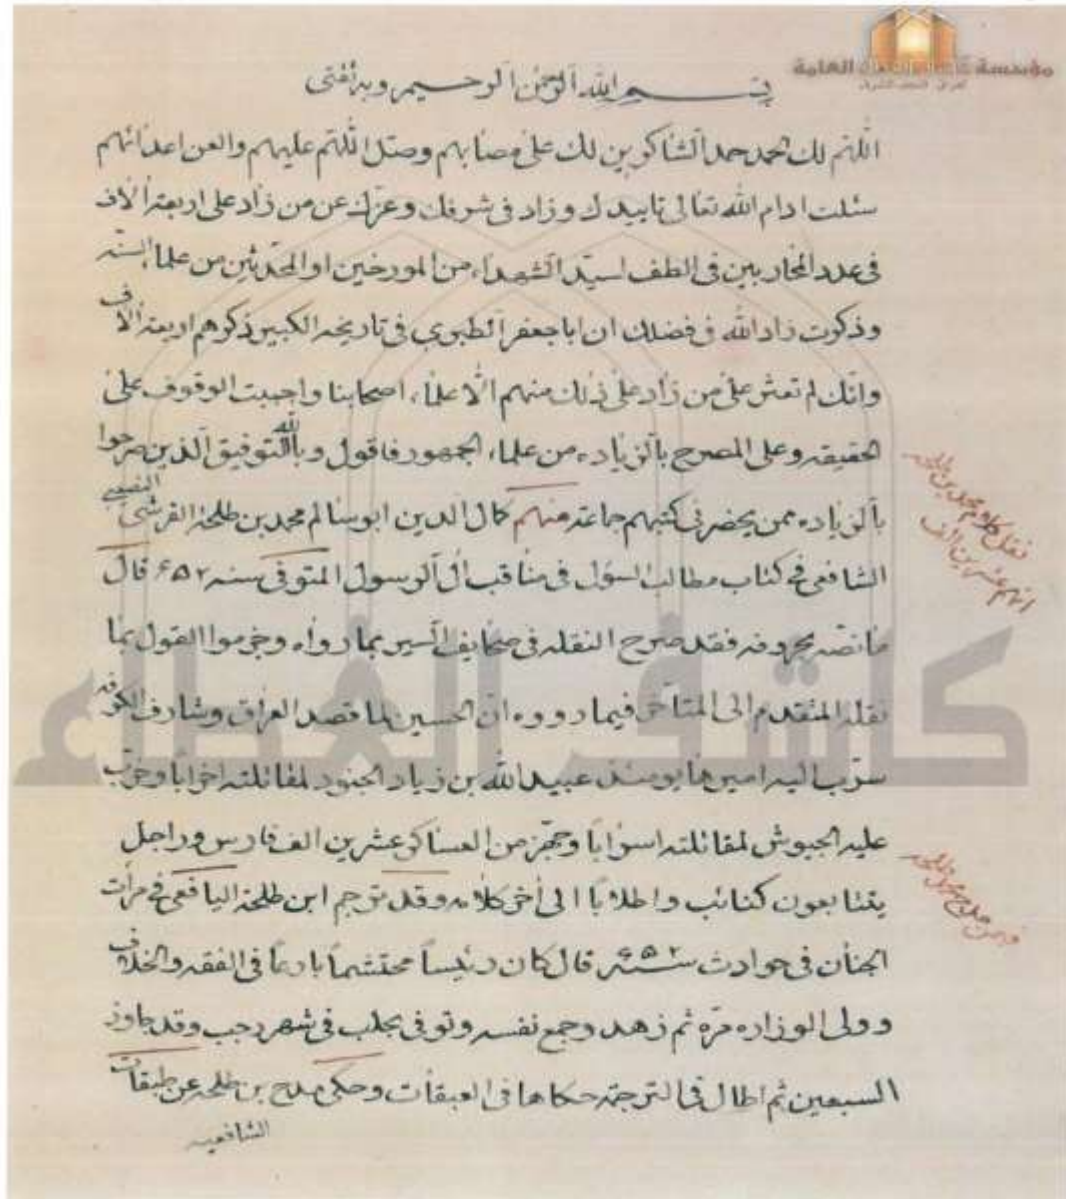 مؤسسة كاشف الغطاء العامة
بسم الله الرحمن الرحيم وبه ثقتي
اللهم لك الحمد حمد الشاكرين لك على مصابهم وصل اللهم عليهم والعن اعدائهم
سئلت ادام الله تعالى تاييدك وزاد في شرفك وعزك عن من زاد على اربعة الاف
في عدد المحاربين في الطف لسيد الشهداء من المورخين او المحدثين من علماء السنه
وذكرت زاد الله في فضلك ان ابا جعفر الطبري في تاريخه الكبير ذكرهم اربعة الاف
وانك لم تعثر على من زاد على ذلك منهم الا علماء اصحابنا واحببت الوقوف على
الحقيقه وعلى المصرح بالزياده من علماء الجمهور فاقول وبالله التوفيق الذين صرحوا
بالزياده ممن يحضرني كتبهم جماعة منهم كمال الدين ابو سالم محمد بن طلحة القرشي النصيبي
الشافعي في كتاب مطالب السؤل في مناقب ال الرسول المتوفى سنه ٦٥٢ قال
ما نصه بحروفه فقد صرح النقله في صحايف السير بما رواه وجزموا القول بما
نقله المتقدم الى المتاخر فيما رووه ان الحسين لما قصد العراق وشارف الكوفه
سرب اليه اميرها يومئذ عبيد الله بن زياد الجنود لمقاتلته احزابا وحزب
عليه الجيوش لمقاتلته اسرابا وجهز من العساكر عشرين الف فارس وراجل
يتتابعون كتائب واطلابا الى أخر كلامه وقد ترجم ابن طلحة اليافعي في مرآت
الجنان في حوادث سنة ٦٥٢ قال كان رئيسا محتشما بارعا في الفقه والخلاف
وولى الوزاره مره ثم زهد وجمع نفسه وتوفى بحلب في شهر رجب وقد جاوز
السبعين ثم اطال في الترجمة حكاها في العبقات وحكى مدح بن طلحه عن طبقات
الشافعيه
نقل كلام محمد بن طلحه
انهم عشرين الف
كاشف الغطاء